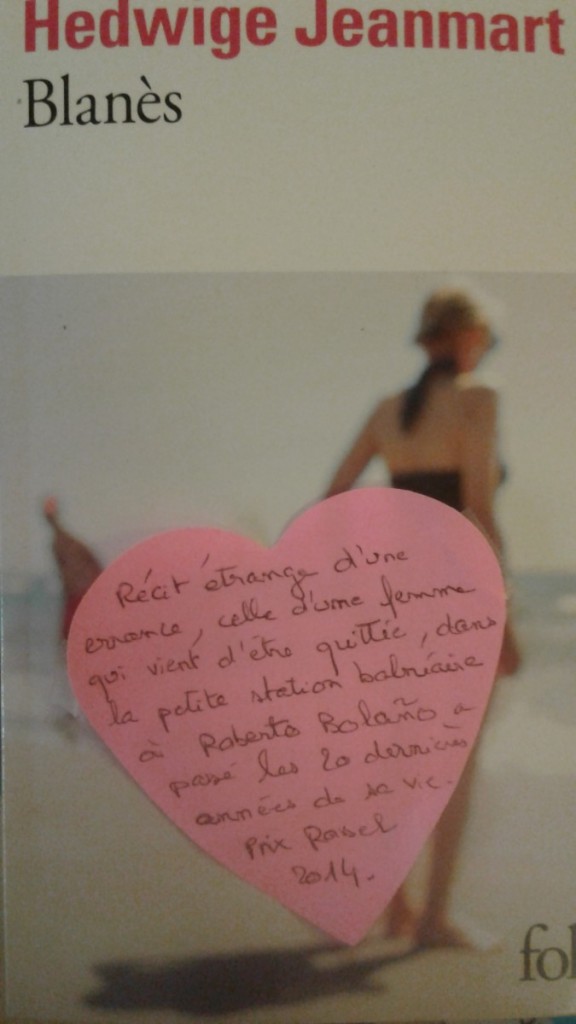 Hedwige Jeanmart
Blanès
Récit étrange d'une
errance, celle d'une femme
qui vient d'être quittée, dans
la petite station balnéaire
où Roberto Bolaño a
passé les 20 dernières
années de sa vie.
Prix Rossel
2014.
fol